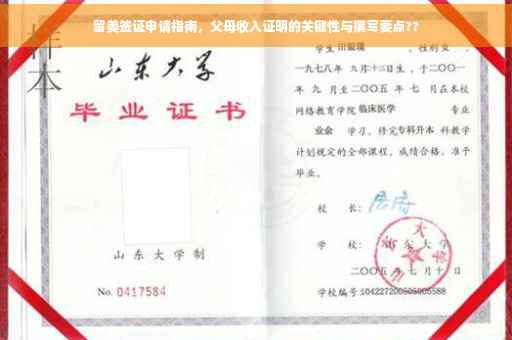 留美签证申请指南，父母收入证明的关键性与撰写要点??
样本
山东大学
毕业证书
山东大学制
No. 0417584
学生 田银瑞 ，性别 女 ，
一九七八年 九月十三日生，于二〇〇一
年 九 月至二〇〇五 年 七 月在本校
网络教育学院 临床医学 专业
业余 学习，修完专科升本 科教学
计划规定的全部课程，成绩合格，准予
毕业。
校 长：
学 校： 山东大学
二〇〇五年 七 月十 日
学校编号：104227200505005588